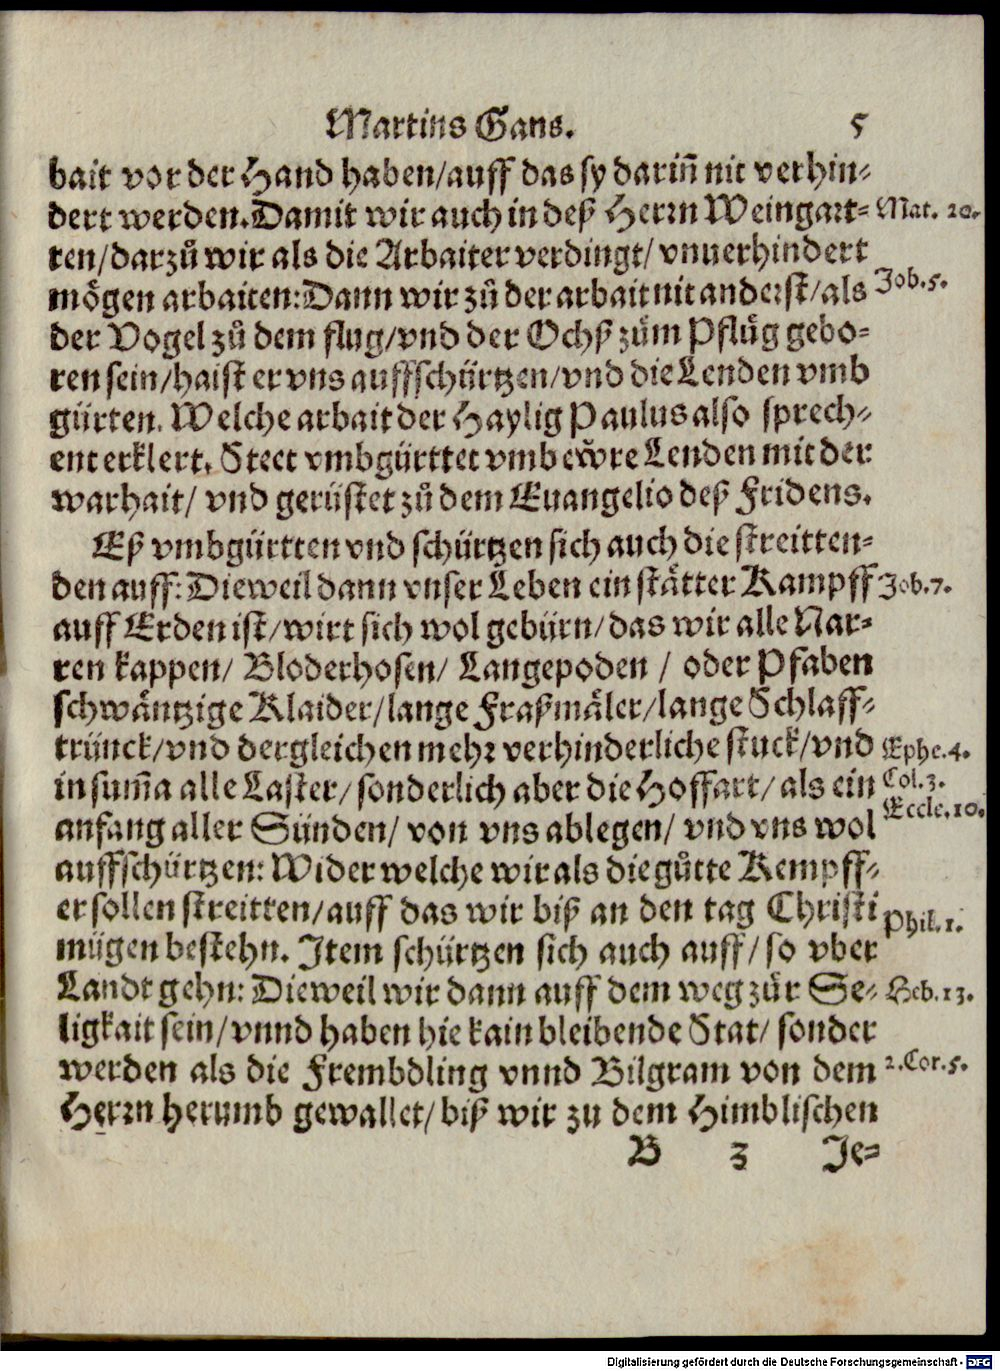 Martins Gans. 5
bait vor der Hand haben/auff das sy dariñ nit verhin-
dert werden. Damit wir auch in deß Herrn Weingart- Mat. 20.
ten/darzů wir als die Arbaiter verdingt/ vnuerhindert
mögen arbaiten: Dann wir zů der arbait nit anderst/als Job. 5.
der Vogel zů dem flug/vnd der Ochß zům Pflůg gebo-
ren sein/haist er vns auffschürtzen/vnd die Lenden vmb
gürten. Welche arbait der Haylig Paulus also sprech-
ent erklert. Steet vmbgürttet vmb ewre Lenden mit der
warhait/ vnd gerüstet zů dem Euangelio deß Fridens.
Eß vmbgürtten vnd schürtzen sich auch die streitten-
den auff: Dieweil dann vnser Leben ein stätter Kampff Job. 7.
auff Erden ist/wirt sich wol gebürn/das wir alle Nar-
ren kappen/ Bloderhosen/ Langepoden / oder Pfaben
schwäntzige Klaider/lange Fraßmäler/lange Schlaff-
trünck/vnd dergleichen mehr verhinderliche stuck/vnd Ephe. 4.
in sum̃a alle Laster/ sonderlich aber die Hoffart/ als ein Col. 3.
anfang aller Sünden/ von vns ablegen/ vnd vns wol Eccle. 10.
auffschürtzen: Wider welche wir als die gůtte Kempff-
er sollen streitten/auff das wir biß an den tag Christi Phil. 1.
mügen bestehn. Item schürtzen sich auch auff/ so vber
Landt gehn: Dieweil wir dann auff dem weg zůr Se- Heb. 13.
ligkait sein/vnnd haben hie kain bleibende Stat/ sonder
werden als die Frembdling vnnd Bilgram von dem 2. Cor. 5.
Herrn herumb gewallet/ biß wir zu dem Himblischen
B 3 Je-
Digitalisierung gefördert durch die Deutsche Forschungsgemeinschaft - DFG